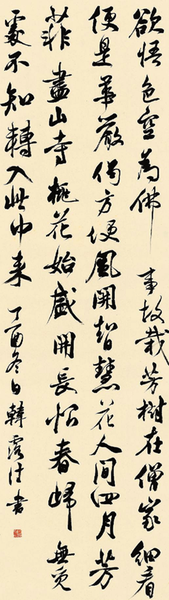 欲悟色空為佛事故栽芳樹在僧家細看
便是華嚴偈方便風開智慧花人間四月芳
菲盡山寺桃花始盛開長恨春歸無覓
處不知轉入此中来 丁酉冬日韓 書